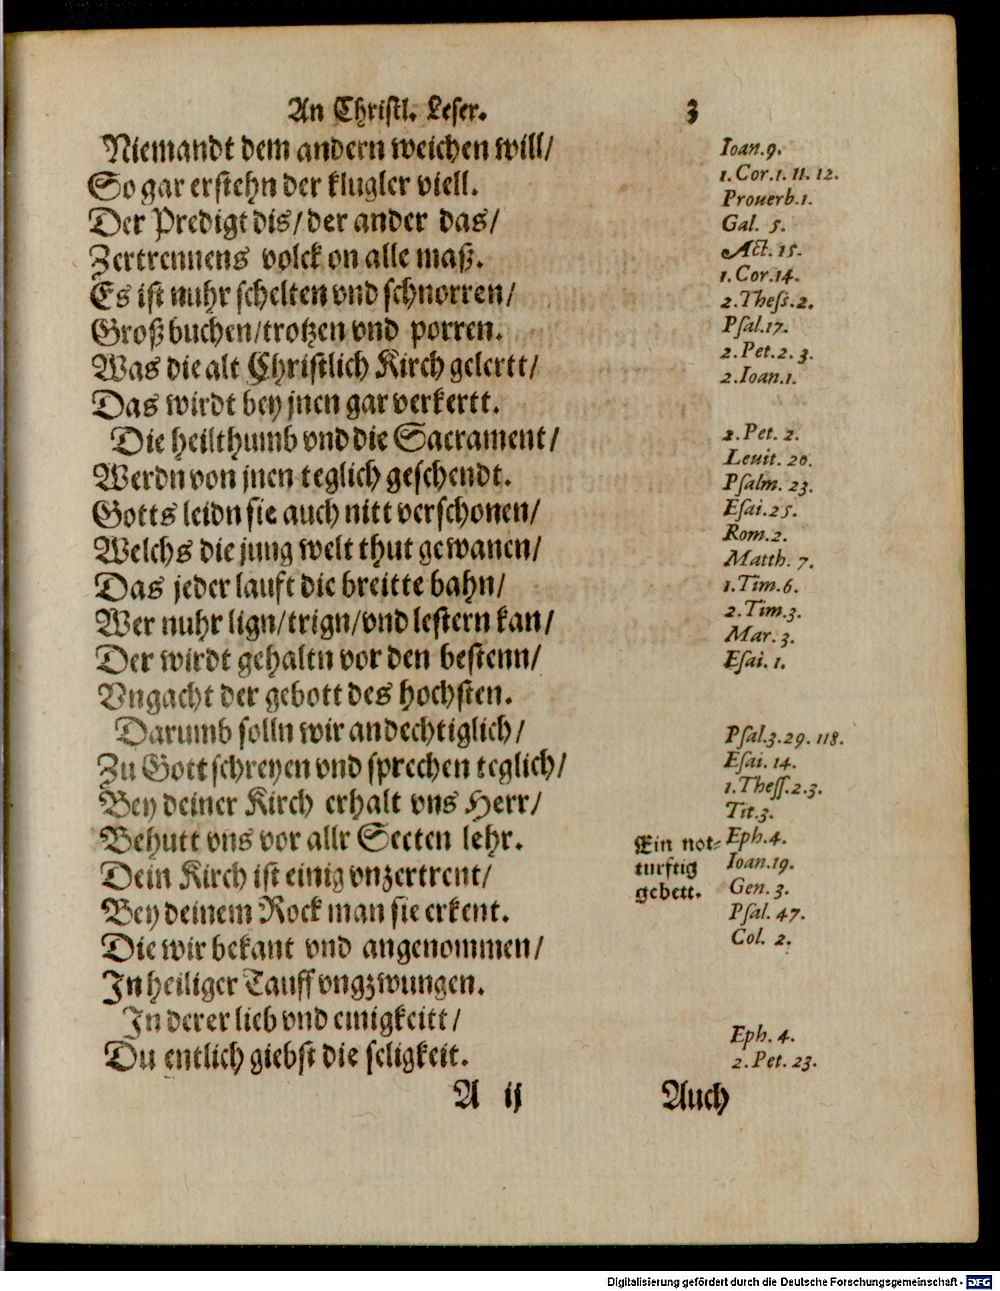 An Christl. Leser. 3
Niemandt dem andern weichen will/
So gar erstehn der klugler viell.
Der Predigt dis/ der ander das/
Zertrennens volck on alle maß.
Es ist nuhr schelten vnd schnorren/
Groß buchen/trotzen vnd porren.
Was die alt Christlich Kirch gelertt/
Das wirdt bey jnen gar verkertt.
Die heilthumb vnd die Sacrament/
Werdn von jnen teglich geschendt.
Gotts leidn sie auch nitt verschonen/
Welchs die jung welt thut gewanen/
Das jeder lauft die breitte bahn/
Wer nuhr lign/trign/vnd lestern kan/
Der wirdt gehaltn vor den bestenn/
Vngacht der gebott des hochsten.
Darumb solln wir andechtiglich/
Zu Gott schreyen vnd sprechen teglich/
Bey deiner Kirch erhalt vns Herr/
Behutt vns vor allr Secten lehr.
Dein Kirch ist einig vnzertrent/
Bey deinem Rock man sie erkent.
Die wir bekant vnd angenommen/
In heiliger Tauff vngzwungen.
In derer lieb vnd einigkeitt/
Du entlich giebst die seligkeit.
A ij Auch
Ioan.9.
1.Cor.1.11.12.
Prouerb.1.
Gal. 5.
Act.15.
1.Cor.14.
2.Thess.2.
Psal.17.
2.Pet.2.3.
2.Ioan.1.
2.Pet. 2.
Leuit. 20.
Psalm. 23.
Esai.25.
Rom.2.
Matth. 7.
1.Tim.6.
2.Tim.3.
Mar. 3.
Esai. 1.
Psal.3.29.118.
Esai. 14.
1.Thess.2.3.
Tit.3.
Eph.4.
Ioan.19.
Gen. 3.
Psal. 47.
Col. 2.
Eph. 4.
2.Pet. 23.
Ein not-
turftig
gebett.
Digitalisierung gefördert durch die Deutsche Forschungsgemeinschaft - DFG